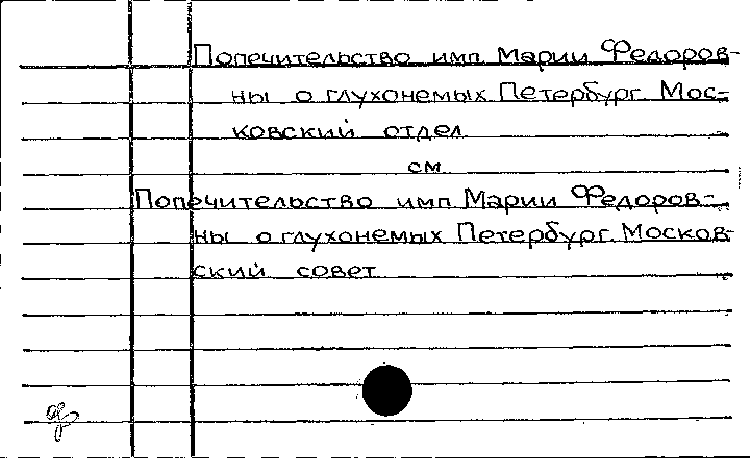 Попечительство имп. Марии Федоров-
ны о глухонемых. Петербург. Мос-
ковский отдел
см.
Попечительство имп. Марии Федоров-
ны о глухонемых. Петербург. Москов-
ский совет